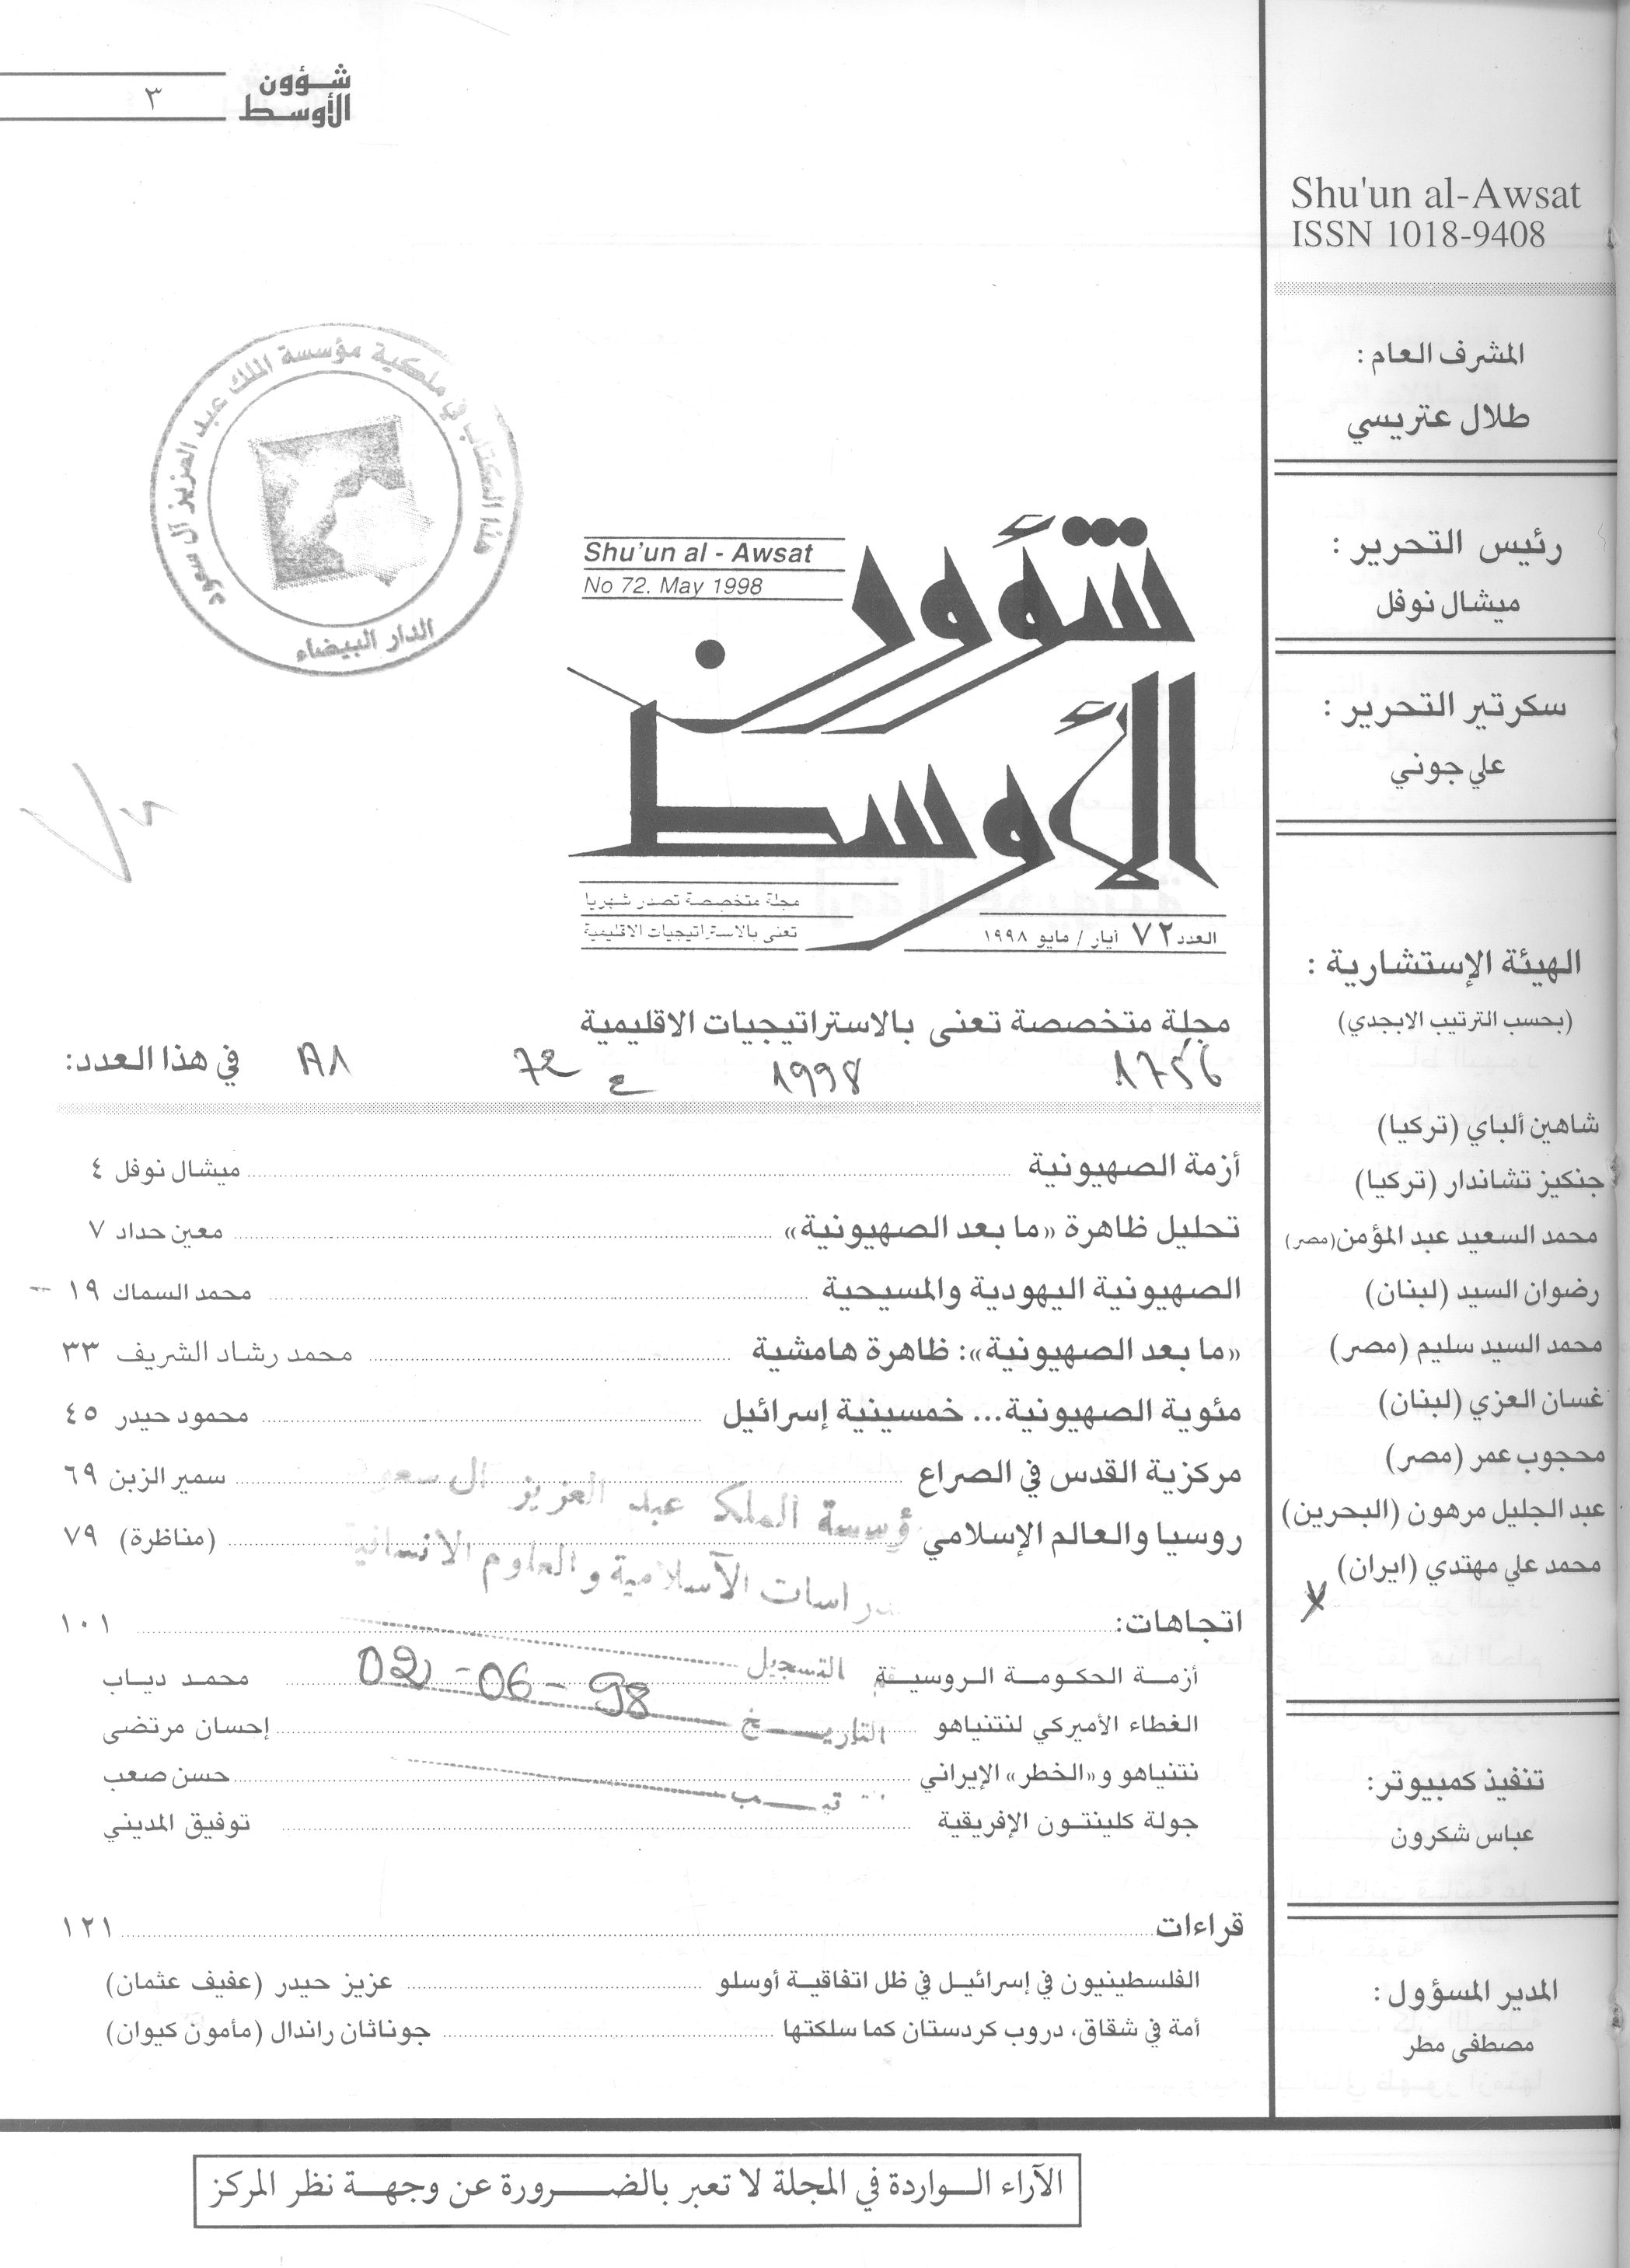 شؤون
الأوسط
٣
Shu'un al-Awsat
ISSN 1018-9408
المشرف العام :
طلال عتريسي
رئيس التحرير :
ميشال نوفل
سكرتير التحرير :
علي جوني
الهيئة الإستشارية :
(بحسب الترتيب الابجدي)
شاهين ألباي (تركيا)
جنكيز تشاندار (تركيا)
محمد السعيد عبد المؤمن (مصر)
رضوان السيد (لبنان)
محمد السيد سليم (مصر)
غسان العزي (لبنان)
محجوب عمر (مصر)
عبد الجليل مرهون (البحرين)
محمد علي مهتدي (ايران)
تنفيذ كمبيوتر:
عباس شكرون
المدير المسؤول :
مصطفى مطر
هذا الكتاب في ملكية مؤسسة الملك عبد العزيز آل سعود
الدار البيضاء
Shu'un al - Awsat
No 72. May 1998
شؤون
الأوسط
مجلة متخصصة تصدر شهريا
تعنى بالاستراتيجيات الاقليمية
العدد ٧٢ أيار / مايو ١٩٩٨
مجلة متخصصة تعنى بالاستراتيجيات الاقليمية
1756 1998 ع 72
في هذا العدد:
أزمة الصهيونية ميشال نوفل ٤
تحليل ظاهرة «ما بعد الصهيونية» معين حداد ٧
الصهيونية اليهودية والمسيحية محمد السماك ١٩
«ما بعد الصهيونية»: ظاهرة هامشية محمد رشاد الشريف ٣٣
مئوية الصهيونية... خمسينية إسرائيل محمود حيدر ٤٥
مركزية القدس في الصراع سمير الزبن ٦٩
روسيا والعالم الإسلامي (مناظرة) ٧٩
مؤسسة الملك عبد العزيز آل سعود
للدراسات الآسلامية والعلوم الانسانية
اتجاهات: ١٠١
أزمـة الحكومـة الـروسيـة محمـد ديـاب
الغطاء الأميركي لنتنياهو إحسان مرتضى
نتنياهو و«الخطر» الإيراني حسن صعب
جولة كلينتـون الإفريقية توفيق المديني
التسجيل
التاريـخ 02-06-98
قراءات ١٢١
الفلسطينيون في إسرائيـل في ظل اتفاقيـة أوسلو عزيز حيدر (عفيف عثمان)
أمة في شقاق، دروب كردستان كما سلكتها جوناثان راندال (مأمون كيوان)
الآراء الـواردة في المجلة لا تعبر بالضـرورة عن وجهـة نظر المركز